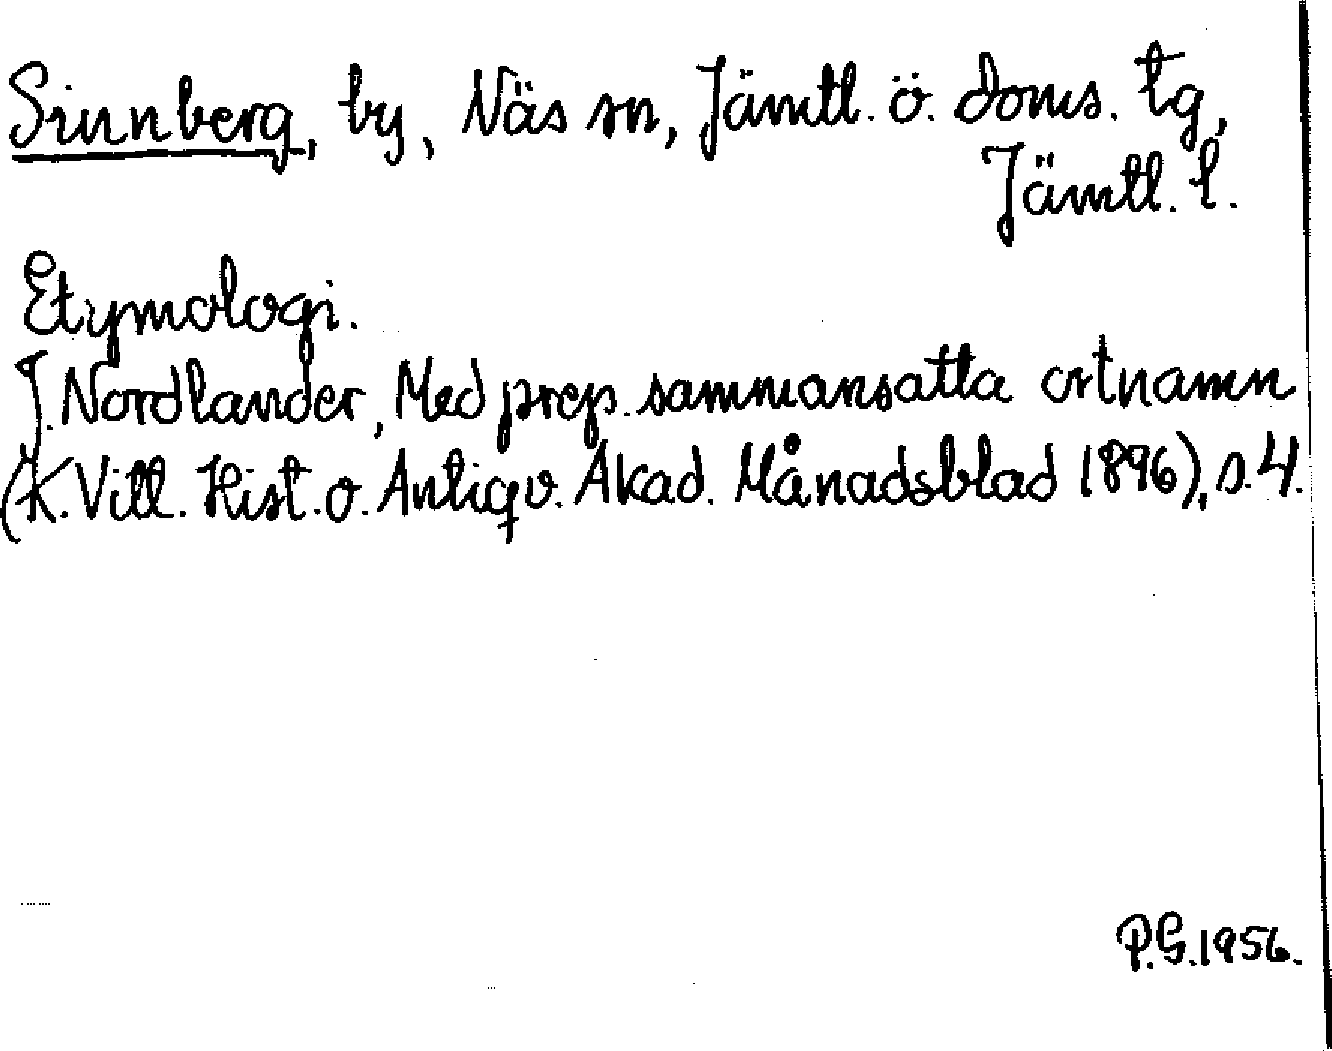 Sinnberg, by, Näs sn, Jämtl. ö. doms. tg,
Jämtl. l.
Etymologi.
J. Nordlander, Med prep. sammansatta ortnamn
(K. Vitt. Hist. o. Antiqv. Akad. Månadsblad 1896), s. 4.
P.G. 1956.